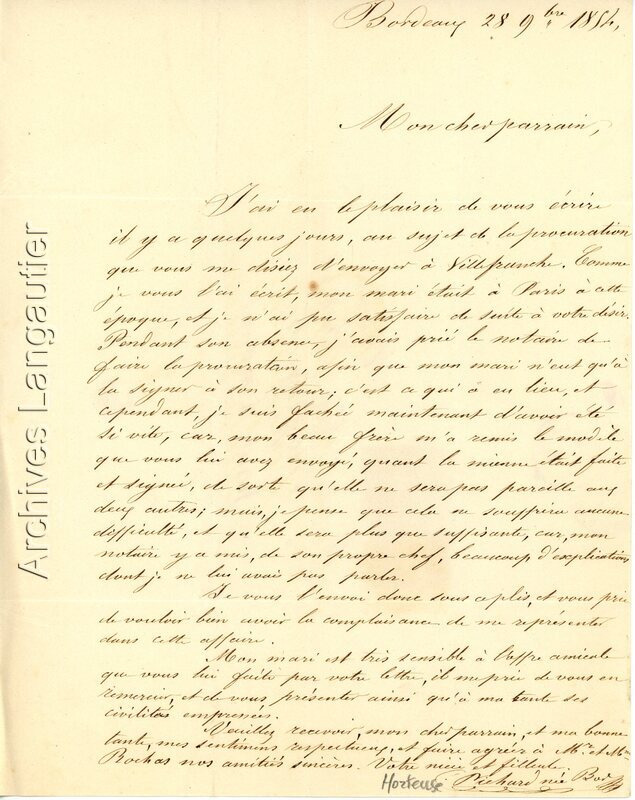 Bordeaux 28 9bre 1854
Mon cher parrain,
J'ai eu le plaisir de vous écrire
il y a quelques jours, au sujet de la procuration
que vous me disiez d'envoyer à Villefranche. Comme
je vous l'ai écrit, mon mari était à Paris à cette
époque, et je n'ai pu satisfaire de suite à votre désir.
Pendant son absence, j'avais prié le notaire de
faire la procuration, afin que mon mari n'eut qu'à
la signer à son retour; c'est ce qui à eu lieu, et
cependant, je suis fachée maintenant d'avoir été
si vite, car, mon beau frère m'a remis le modèle
que vous lui avez envoyé, quant la mienne était faite
et signée, de sorte qu'elle ne sera pas pareille aux
deux autres; mais, je pense que cela ne souffrira aucune
difficulté, et qu'elle sera plus que suffisante, car, mon
notaire y a mis, de son propre chef, beaucoup d'explications
dont je ne lui avais pas parler.
Je vous l'envoi donc sous ce plis, et vous prie
de vouloir bien avoir la complaisance de me représenter
dans cette affaire.
Mon mari est très sensible à l'offre amicale
que vous lui faite par votre lettre, il me prie de vous en
remercier, et de vous présenter ainsi qu'à ma tante ses
civilités empressées.
Veuillez recevoir, mon cher parrain, et ma bonne
tante, mes sentimens respectueux, et faire agréer à Mr et Mme
Rochas nos amitiés sincères. Votre nièce et filleule.
Hortense Richard née
Archives Langautier